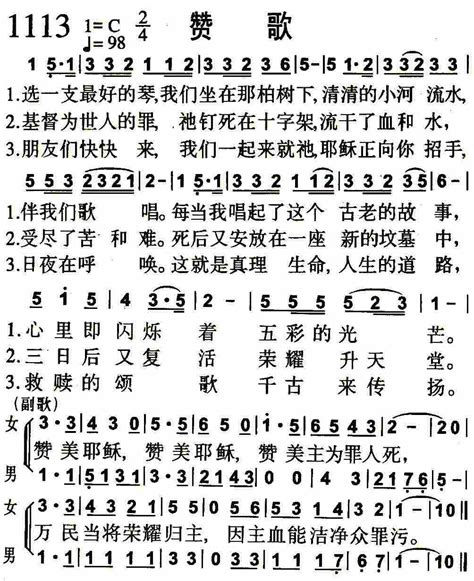 1113 1=C 2/4 ♩=98 赞 歌
1 5·1|3 3 2 1 1 2|3 3 3 6|5-|5 1·2|3 3 2 3 2|3 2 3 3|
1.选一支最好的琴,我们坐在那柏树下,清清的小河 流水,
2.基督为世人的罪, 祂钉死在十字架,流干了血和 水,
3.朋友们快快 来, 我们一起来就祂,耶稣正向你 招手,
1.伴我们歌 唱。每当我唱起了这个 古老的故 事,
2.受尽了苦 和 难。死后又安放在一座 新的坟墓 中,
3.日夜在呼 唤。这就是真理 生命,人生的道 路,
5 1 5|3·5|2-|5 5 5|5 2 3|1-|
1.心 里 即 闪 烁 着 五 彩 的 光 芒。
2.三 日 后 又 复 活 荣 耀 升 天 堂。
3.救 赎 的 颂 歌 千 古 来 传 扬。
(副歌)
女 3·3|4 3 0|5·5|6 5 0|5·1|6 5 4 3|4·6|2-|2 0|
赞 美 耶稣, 赞 美 耶稣, 赞 美主为罪人死,
男 1·1|5 1 3 1|3·3|2 1 4 3|0 1·3|2 1 4 3|2 1 7 6|5-|5 0|
女 3·3|4 3 0|5·5|6 5 0|1 1 1 6|5 4 3|2·1|1-|1 0‖
万 民当将荣耀归主, 因主血能洁净众罪污。